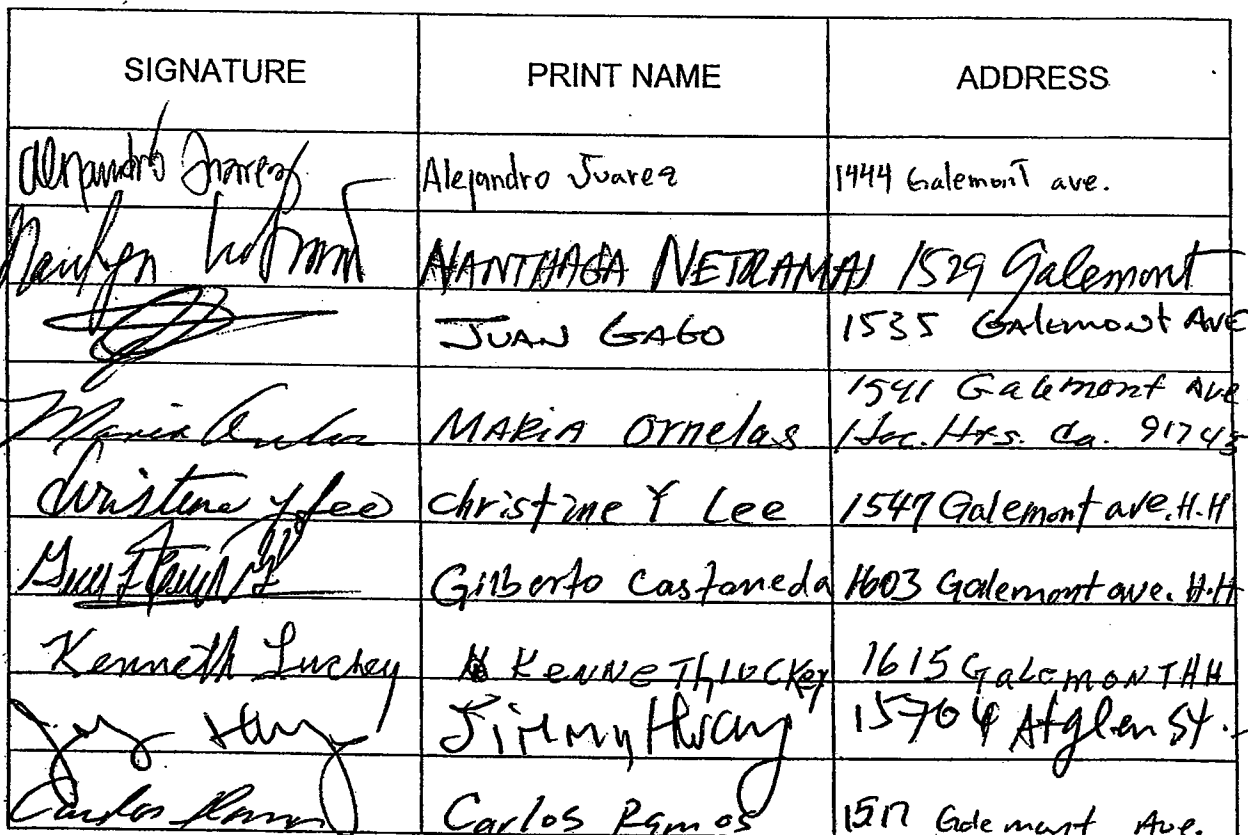 SIGNATURE PRINT NAME ADDRESS
Alejandro Juarez Alejandro Juarez 1444 Galemont ave.
NANTHAGA NETRAMAI 1529 Galemont
JUAN GAGO 1535 Galemont AVE
1541 Galemont Ave
Maria MARIA Ornelas Hac. Hts. Ca. 91745
Christine Y Lee Christine Y Lee 1547 Galemont ave. H.H
Gilberto Castaneda 1603 Galemont ave. H.H
Kenneth Luckey KENNETH LUCKEY 1615 GALEMONT HH
Jimmy Hwang 15704 Atglen St.
Carlos Ramos Carlos Ramos 1517 Galemont Ave.